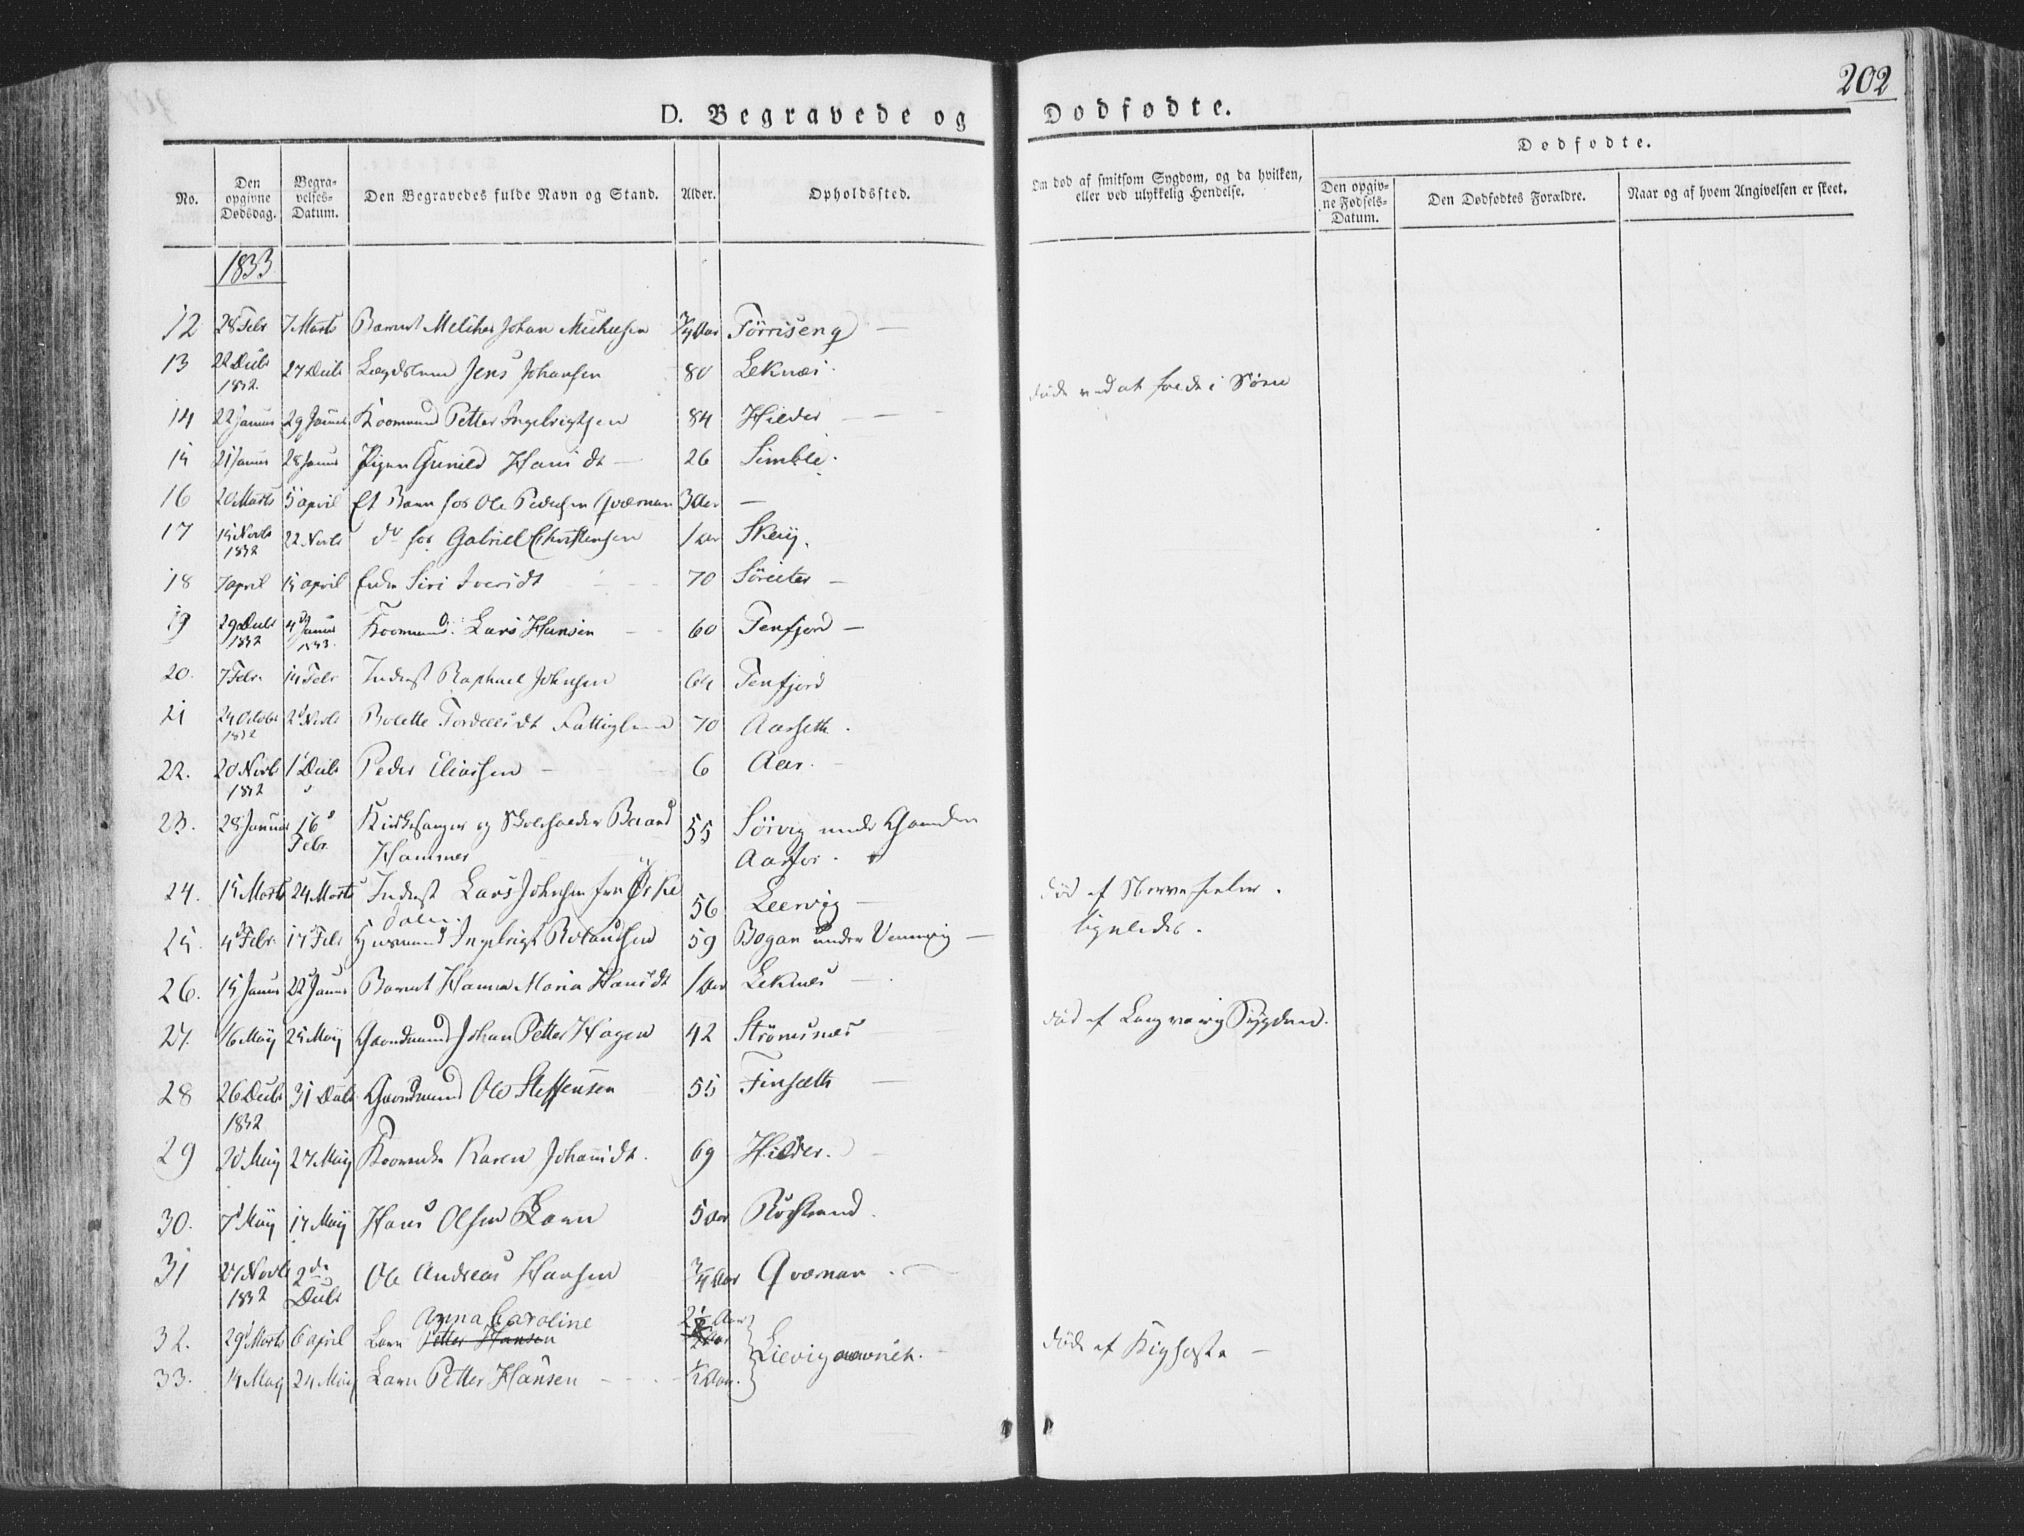 202
D. Begravede og Dødfødte.
Dødfødte.
No.
Den opgivne Dødsdag.
Begravelses-Datum.
Den Begravedes fulde Navn og Stand.
Alder.
Opholdssted.
Om død af smitsom Sygdom, og da hvilken, eller ved ulykkelig Hendelse.
Den opgivne Fødsels-Datum.
Den Dødfødtes Forældre.
Naar og af hvem Angivelsen er skeet.
1833
12 28 Febr 7 Marts Barnet Johan 3/4 Aar Tørriseng
13 22 Decbr 1832 27 Decbr Lægdslem Jens Johansen 80 Leknæs døde ved at falde i Søen
14 22 Januar 29 Januar Kaarmand Petter Ingebrigtsen 84 Hilder
15 21 Januar 28 Januar Pigen Gunild Hansdt 26 Simble
16 20 Marts 5 april Et Barn for Ole Pedersen Qværnan 3 Aar —
17 15 Novbr 1832 22 Novbr do for Gabriel Christensen 1 Aar
18 7 april 15 april Enke Siri Iversdt 70
19 29 Decbr 1832 4de Januar 1833 Kaarmand Lars Hansen 60 Tenfjord
20. 7 Febr. 14 Febr Inderst Raphael Johnsen 64 Tenfjord
21 24 October 1832 2 Novbr Bolette Tordersdt Fattiglem 70 Aarseth.
22. 20 Novbr 1832 1 Decbr Peder Eliassen 6 Aar.
23. 28 Januar 16 Febr. Kirkesanger og Skoleholder Berand Hammer 55 Sørvig under Gaarden Aarfor.
24. 15 Marts 24 Marts Inderst Lars Johnsen fra Ørkedalen 56 Leervig død af Nervefeber.
25. 4 Febr. 17 Febr Huusmand Ingebrigt Rolandsen 59 Bogan under Vennevig ligeledes.
26. 15 Januar 22 Januar Barnet Hanna Maria Hansdt 1 Aar Leknæs
27. 16 Maij 25 Maij Gaardmand Johan Petter Hagen 42 Strømsnæs død af Langvarig Sygdom.
28 26 Decbr 1832 31 Decbr Gaardmand Ole Steffensen 55 Finsæth
29 20 Maij 27 Maij Kaarenke Karen Johansdt. 69 Hilder.
30. 7 Maij 17 Maij Hans Olsen Barn 5 Aar Rødstrand.
31 27 Novbr 1832 2den Decbr Ole Andreas Hansen 3/4 Aar Qværnan.
32. 29 Marts 6 april Barn Anna Caroline Petter Hansen 2½ Aar
33. 14 Maij 24 Maij Barn Petter Hansen ½ Aar. Lievig døde af Kighoste